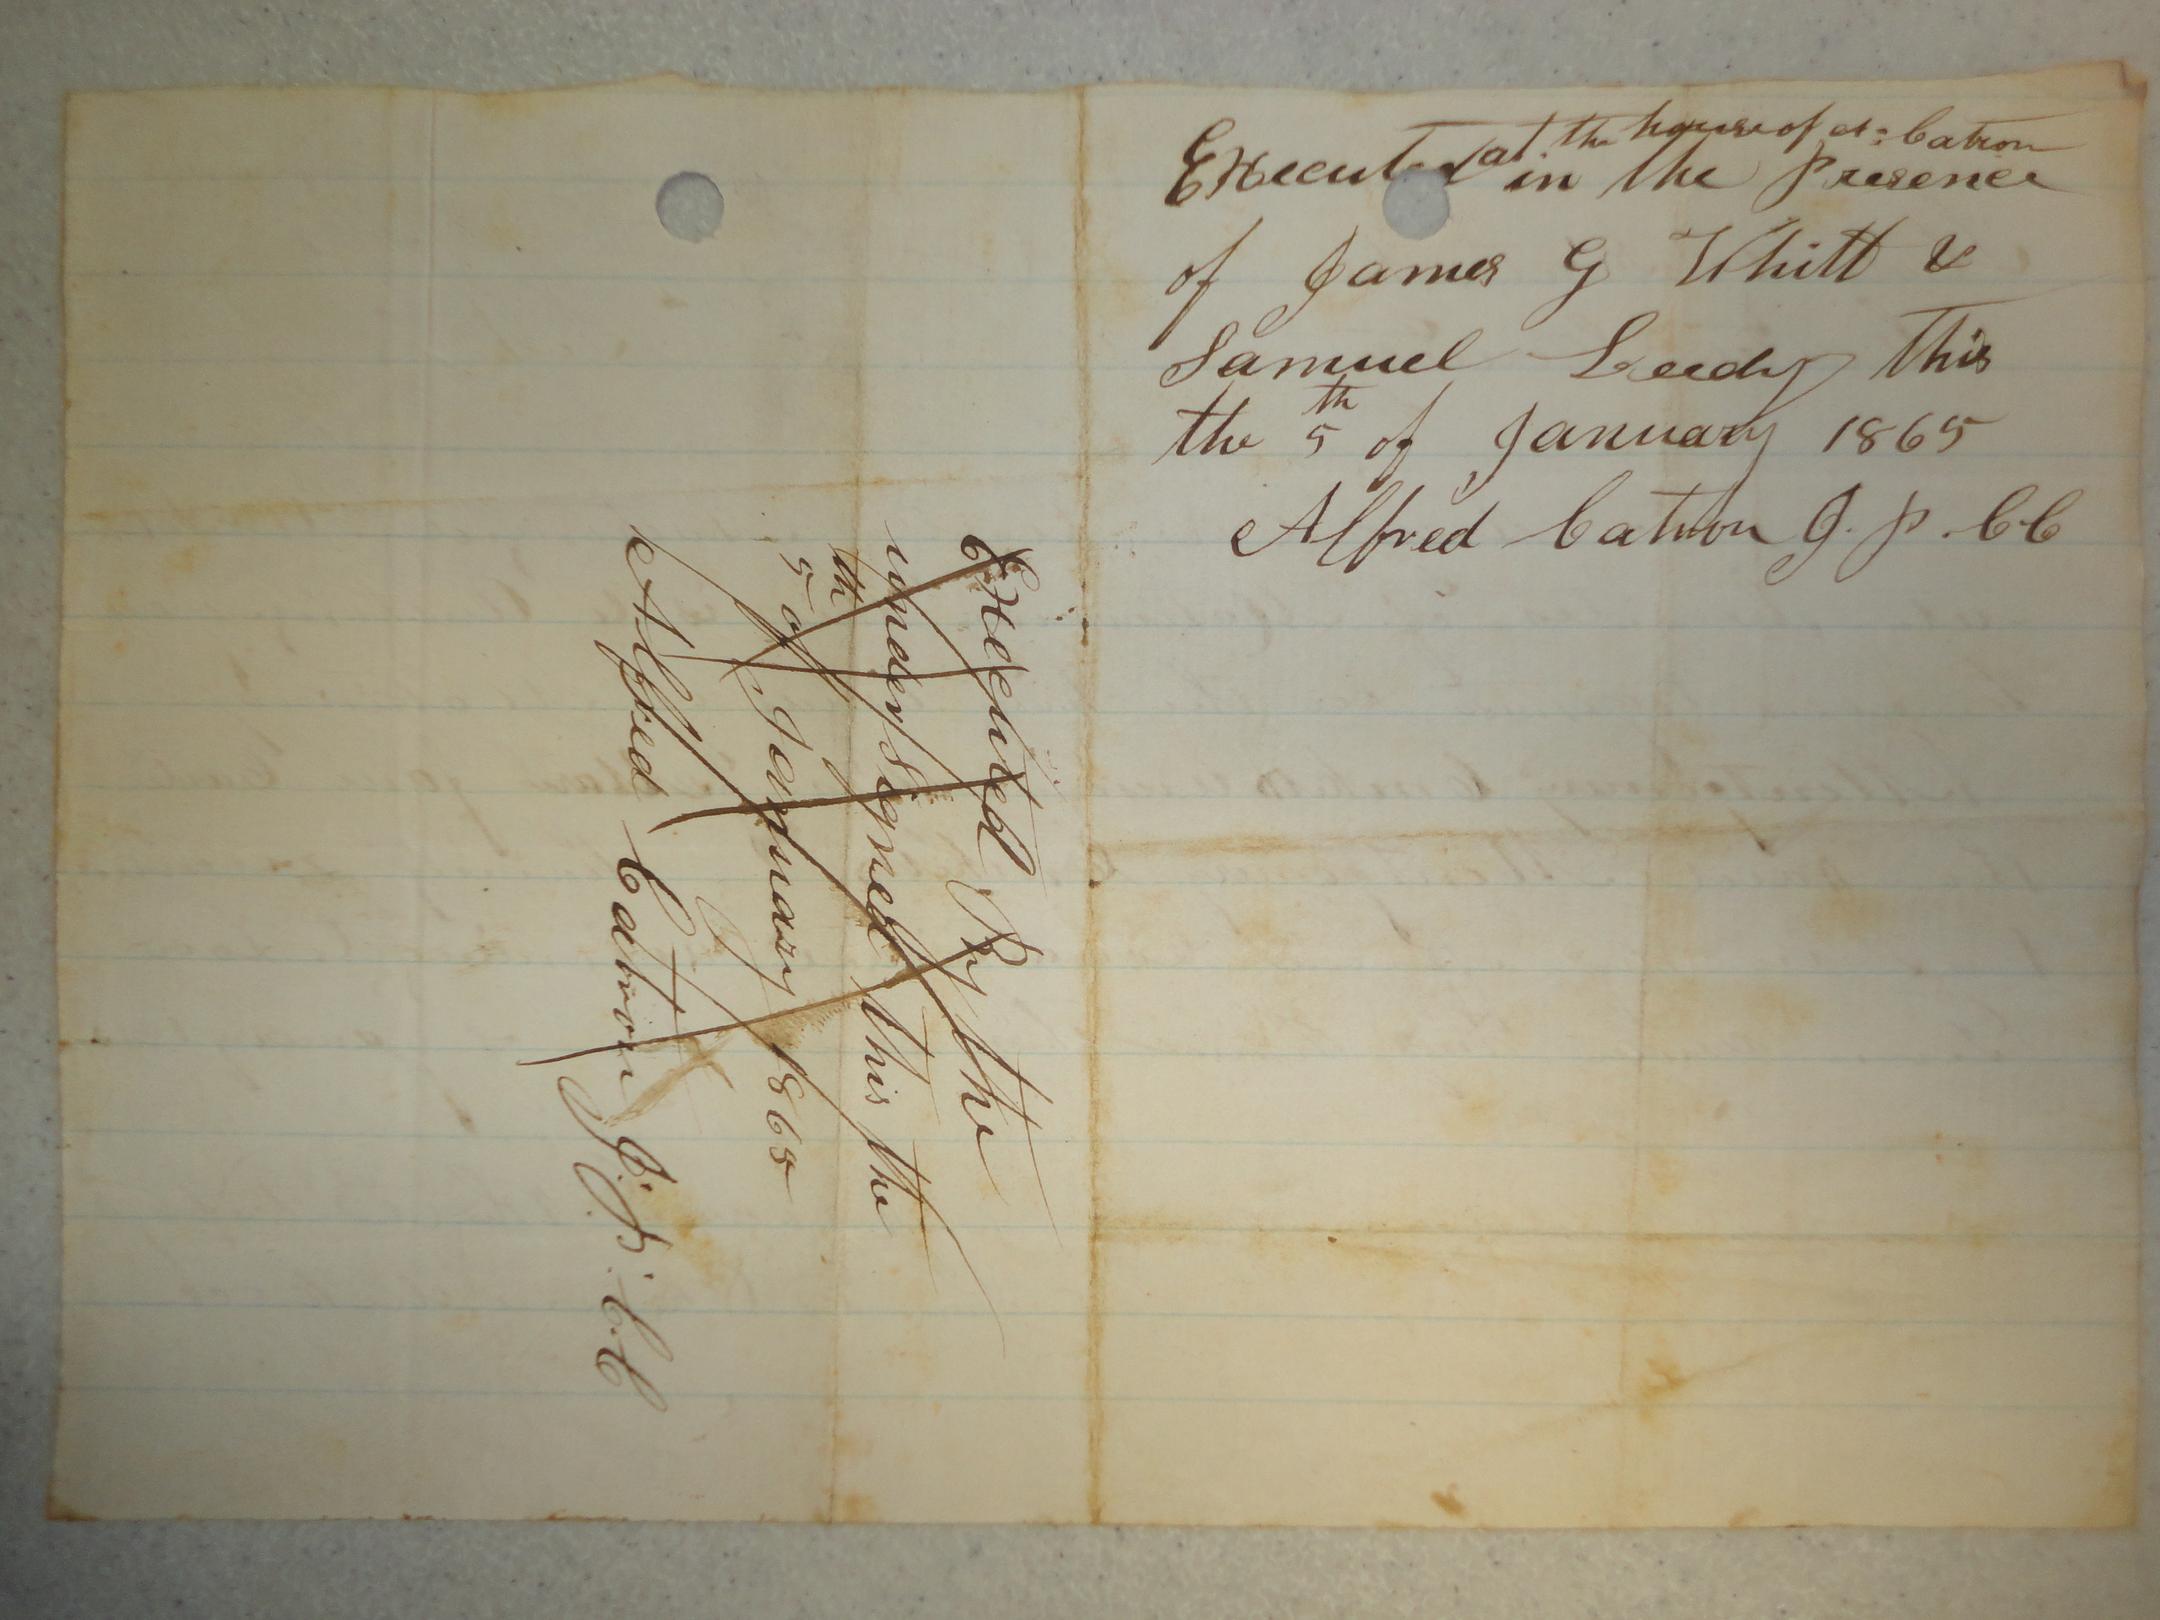 Executed at the house of A: Catron
in the Presence
of James G Whitt &
Samuel Leedy This
the 5th of January 1865
Alfred Catron J. P. C.C
Executed By the
undersigned This the
5th of January 1865
Alfred Catron J. P. C.C